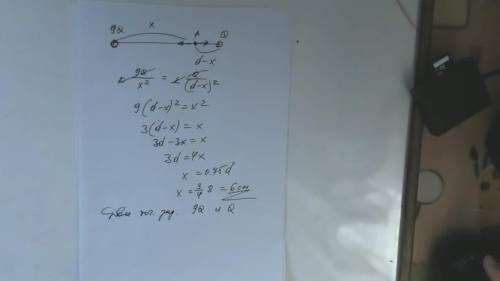 9Q x A Q
d-x
k 9Q/x² = k Q/(d-x)²
9(d-x)²=x²
3(d-x)=x
3d-3x=x
3d=4x
x=0.75d
x=3/4 8=6cm
9Q и Q